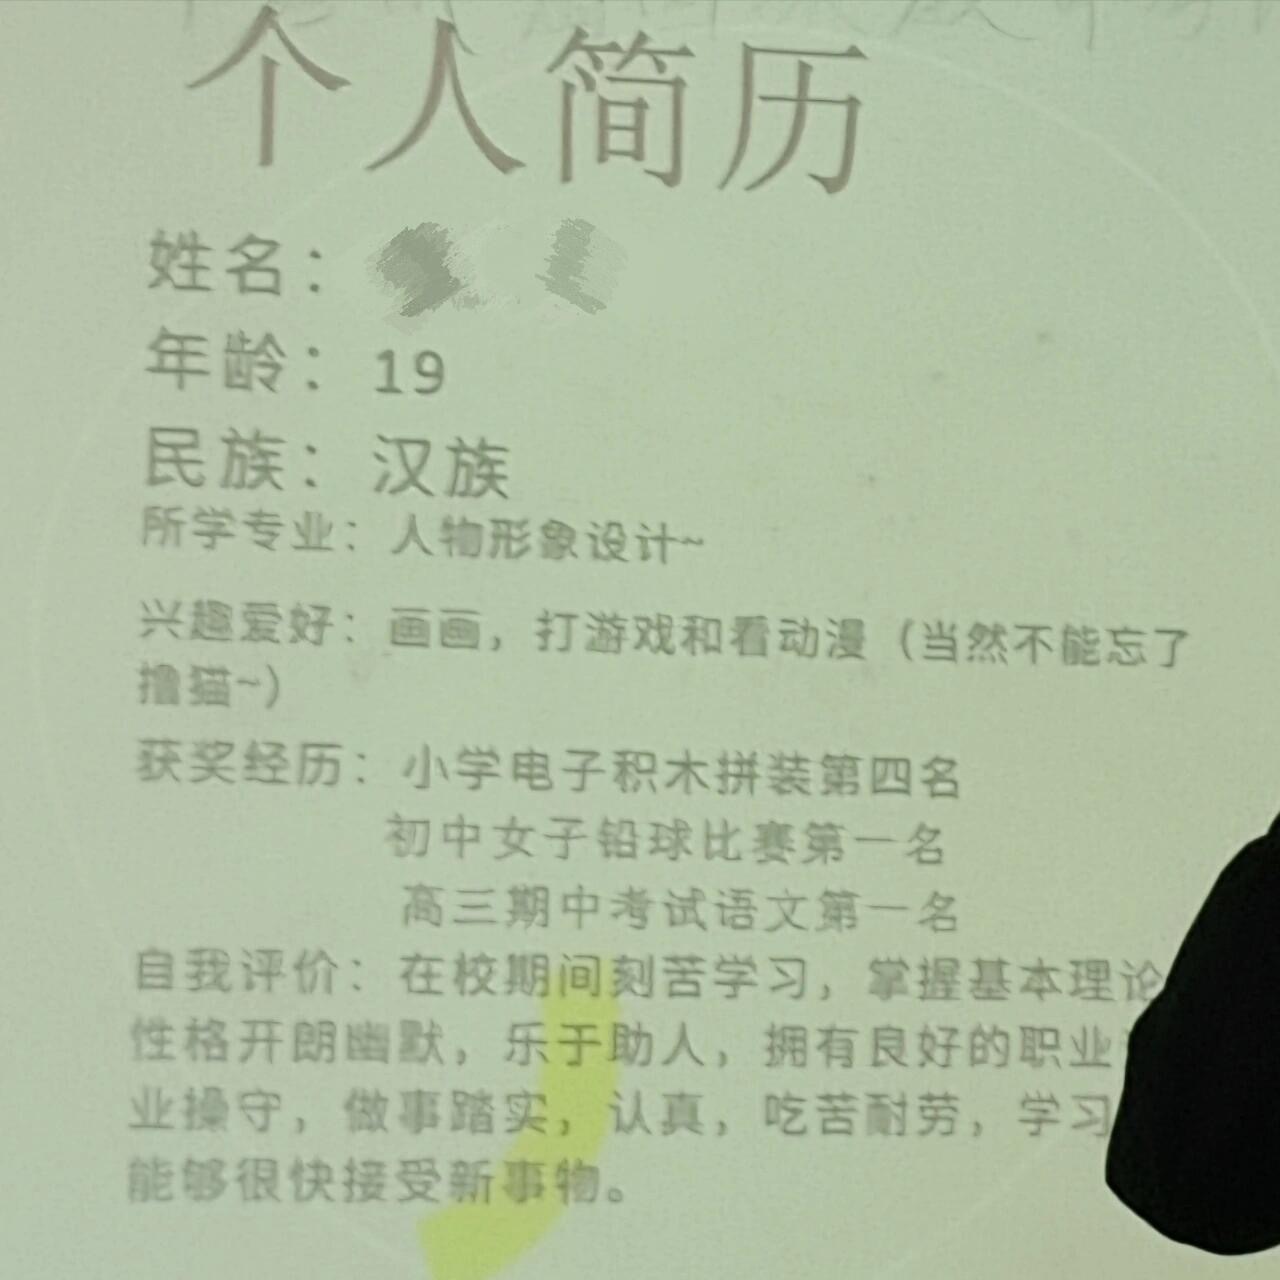 个人简历
姓名：
年龄：19
民族：汉族
所学专业：人物形象设计~
兴趣爱好：画画，打游戏和看动漫（当然不能忘了
撸猫~）
获奖经历：小学电子积木拼装第四名
初中女子铅球比赛第一名
高三期中考试语文第一名
自我评价：在校期间刻苦学习，掌握基本理论
性格开朗幽默，乐于助人，拥有良好的职业
业操守，做事踏实，认真，吃苦耐劳，学习
能够很快接受新事物。